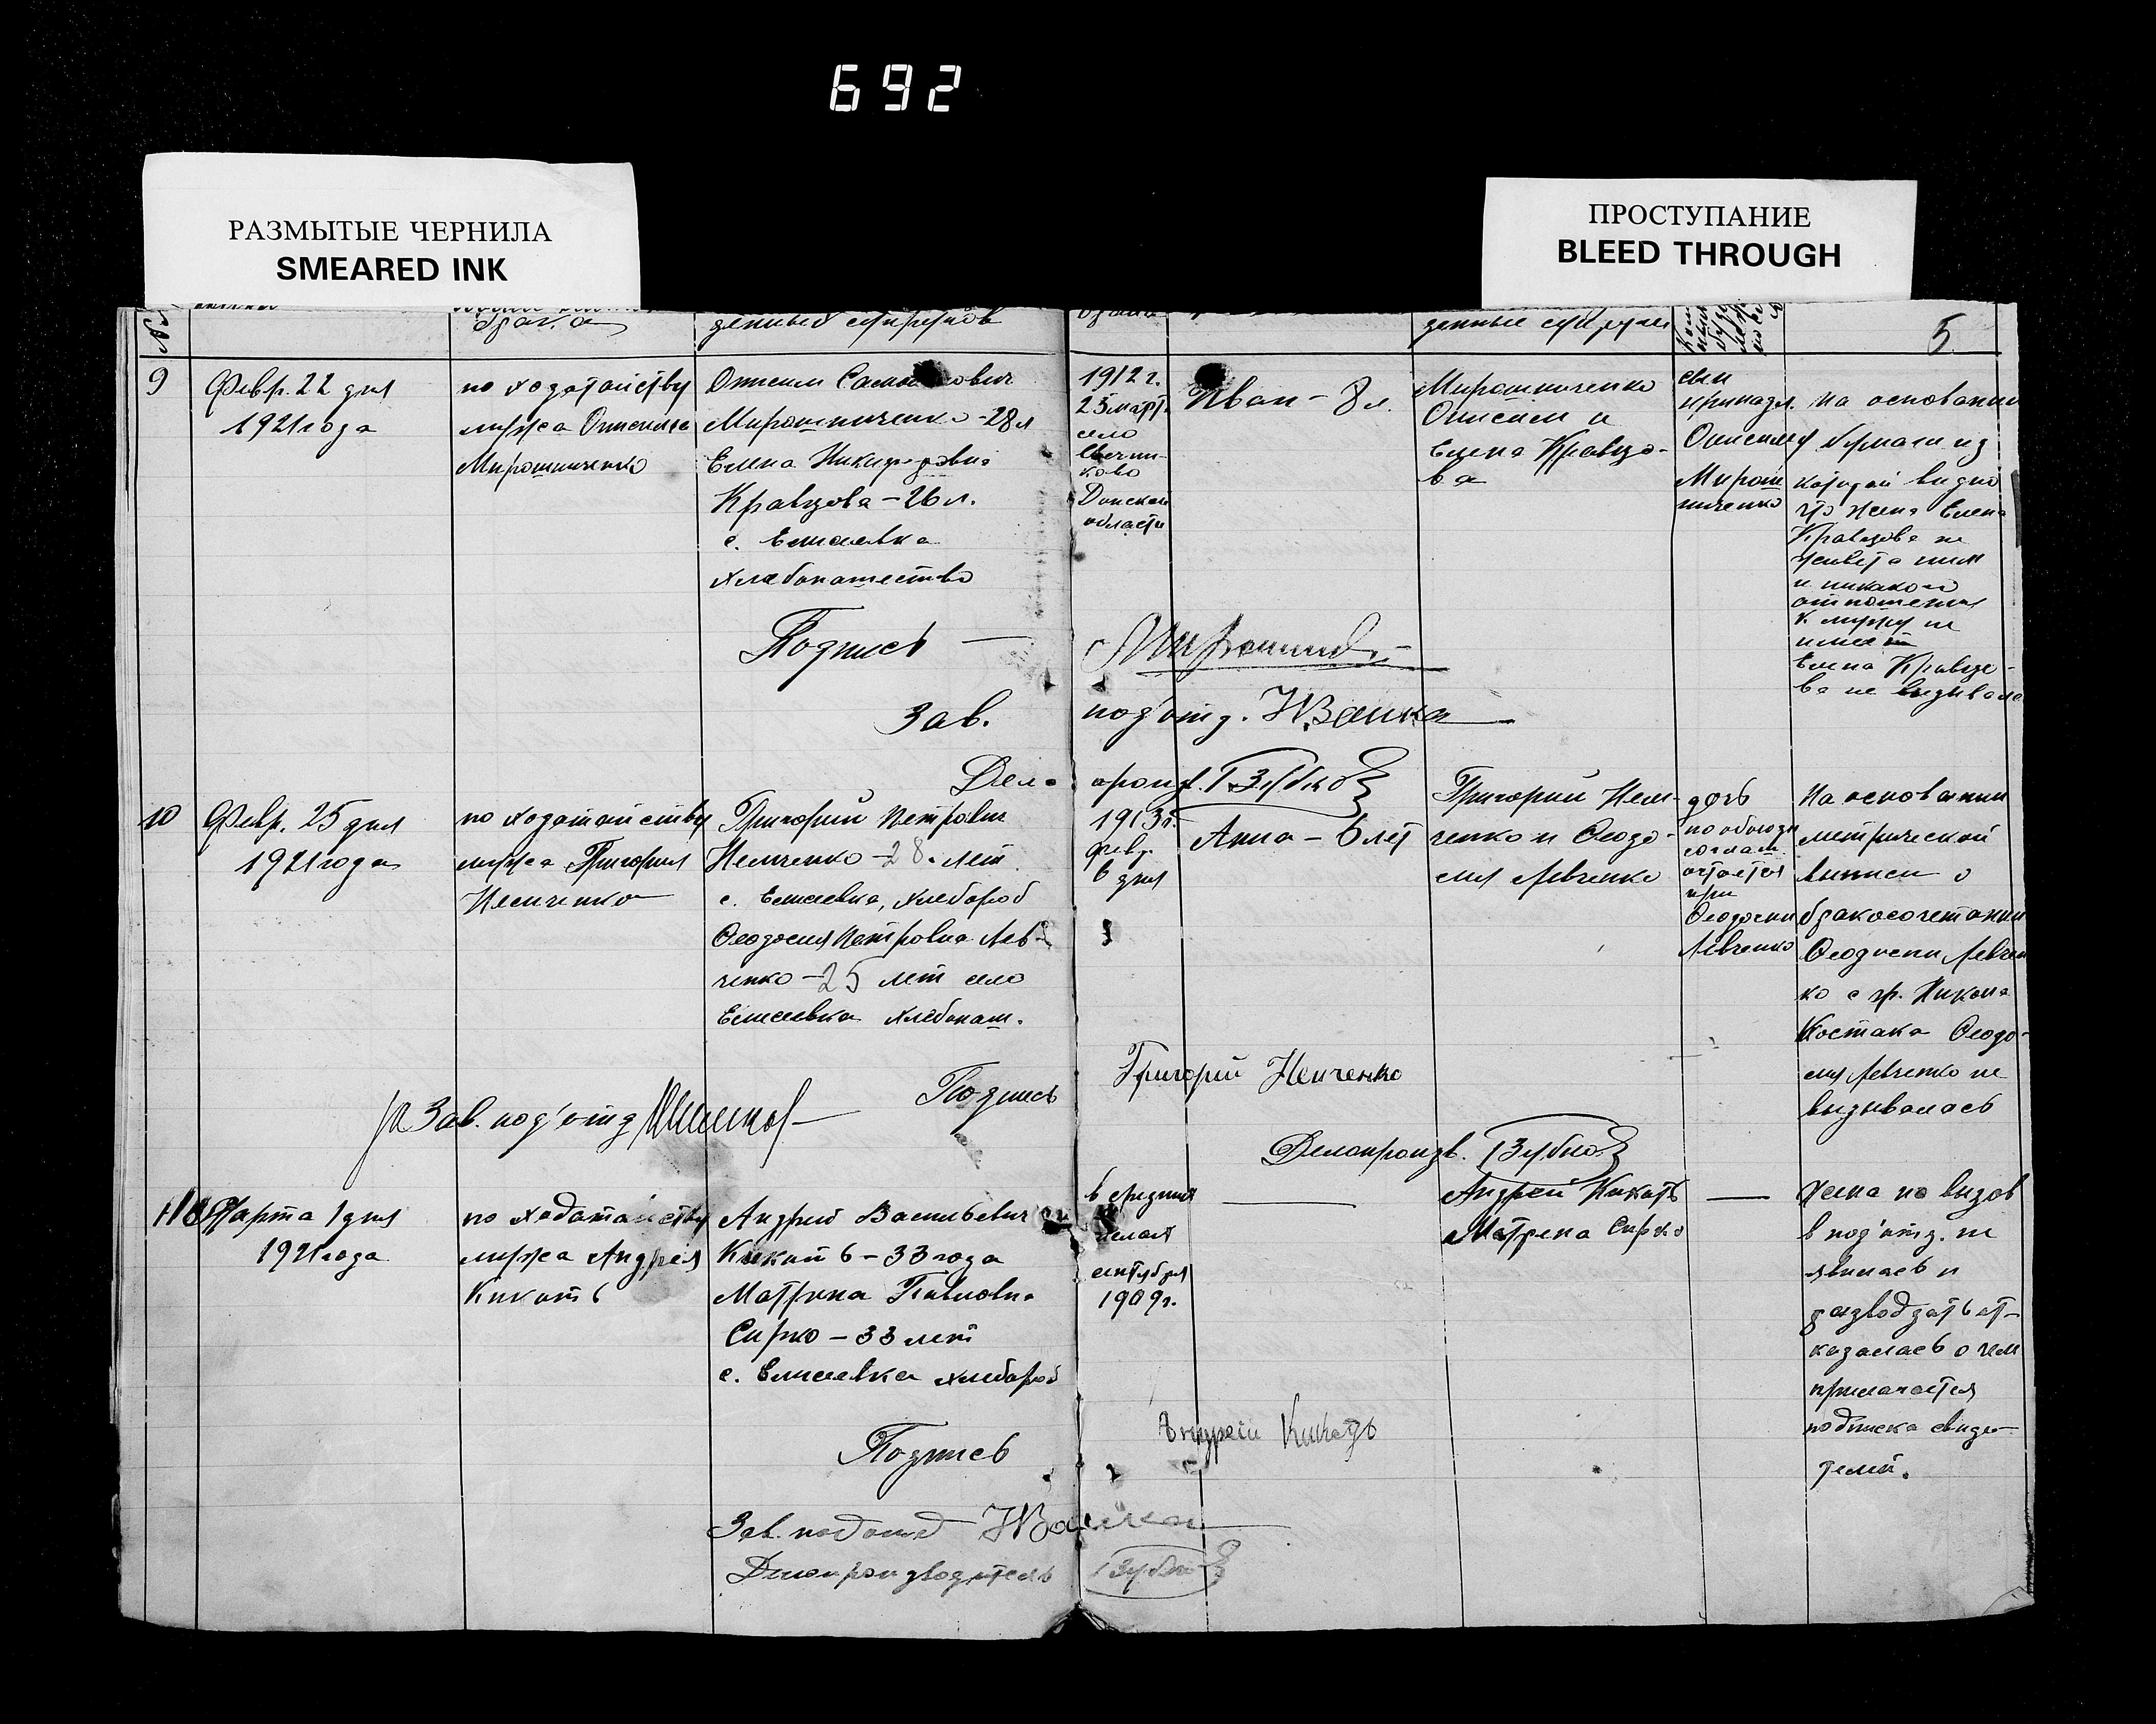 692
РАЗМЫТЫЕ ЧЕРНИЛА
SMEARED INK
ПРОСТУПАНИЕ
BLEED THROUGH
№
брака
данные супругов
данные супруги
5
9
Февр. 22 дня
1921 года
по ходатайству
мужа Онисима
Мирошниченко
Онисим
Мирошниченко - 28 л
Елена Никифоровна
Кравцова - 26 л.
с. Елисеевка
хлебопашество
1912 г.
25 март.
село
Донской
области
Иван - 8 л.
Мирошниченко
Онисим и
Елена Кравцо-
ва
сын
принадл.
Онисиму
Мирош
ниченко
на основании
бумаги из
которой видно
что жена Елена
Кравцова не
живет с ним
и никакого
отношения
к мужу не
имеет
Елена Кравцо-
ва не вызывала
Подпись —
Зав.
под'отд.
Дело
произв. Зубко
10
Февр. 25 дня
1921 года
по ходатайству
мужа Григория
Немченко
Григорий Петрович
Немченко - 28 лет
с. Елисеевка, хлебороб
Феодосия Петровна Лев-
ченко - 25 лет село
Елисеевка хлебопаш.
1913 г.
февр.
6 дня
Анна - 6 лет
Григорий Нем-
ченко и Феодо-
сия Левченко
дочь
по обоюдн
соглаш
остается
при
Феодосии
Левченко
На основании
метрической
выписи о
бракосочетании
Феодосии Левчен
ко с гр. Никона
Костака Феодо-
сия Левченко не
вызывалась
Подпись
Григорий Немченко
за Зав. под'отд
Делопроизв. Зубко
11
Марта 1 дня
1921 года
по ходатайству
мужа Андрея
Кикоть
Андрей Васильевич
Кикоть - 33 года
Матрена Павловна
Сирко - 33 лет
с. Елисеевка хлебороб
в средних
числах
сентября
1909 г.
—
Андрей Кикоть
Матрена Сирко
—
Жена на вызов
в под'отд. не
явилась и
разводзать от-
казалась о чем
прилагается
подписка свиде-
телей.
Подпись
Андрей Кикоть
Зав. подотд
Делопроизводитель Зубко